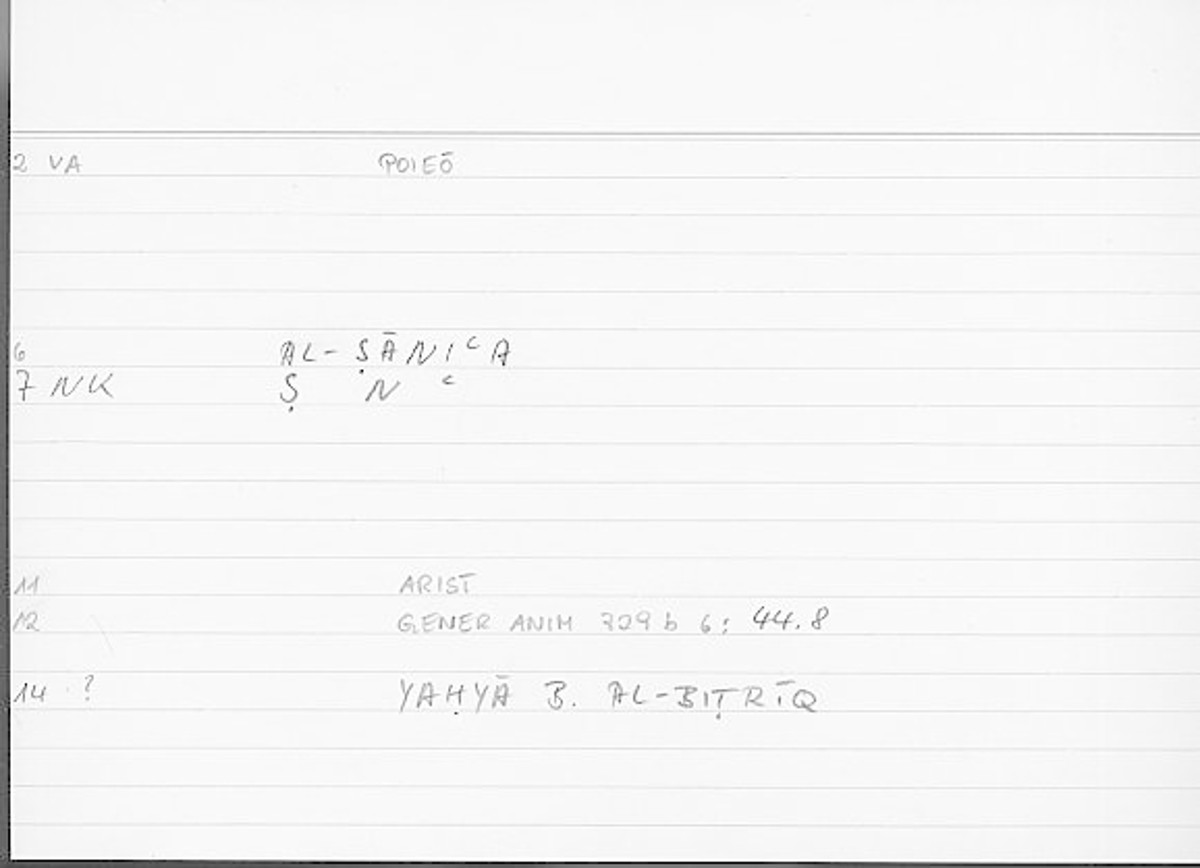 2 VA POIEŌ
6 AL-ṢĀNIᶜA
7 NK Ṣ N ᶜ
11 ARIST
12 GENER ANIM 729 b 6: 44.8
14 ? YAḤYĀ B. AL-BIṬRĪQ